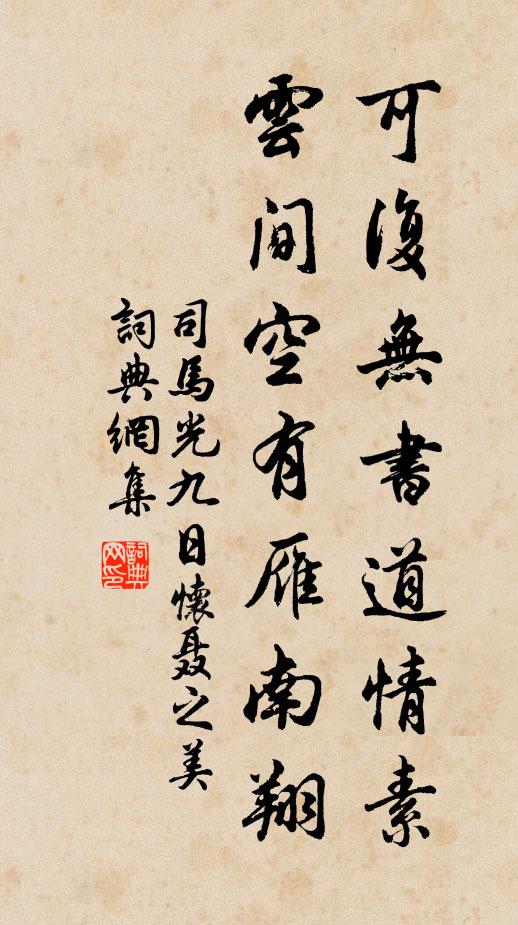 可復無書道情素
雲間空有雁南翔
司馬光九日懷聶之美
詞典網集
詞典網印